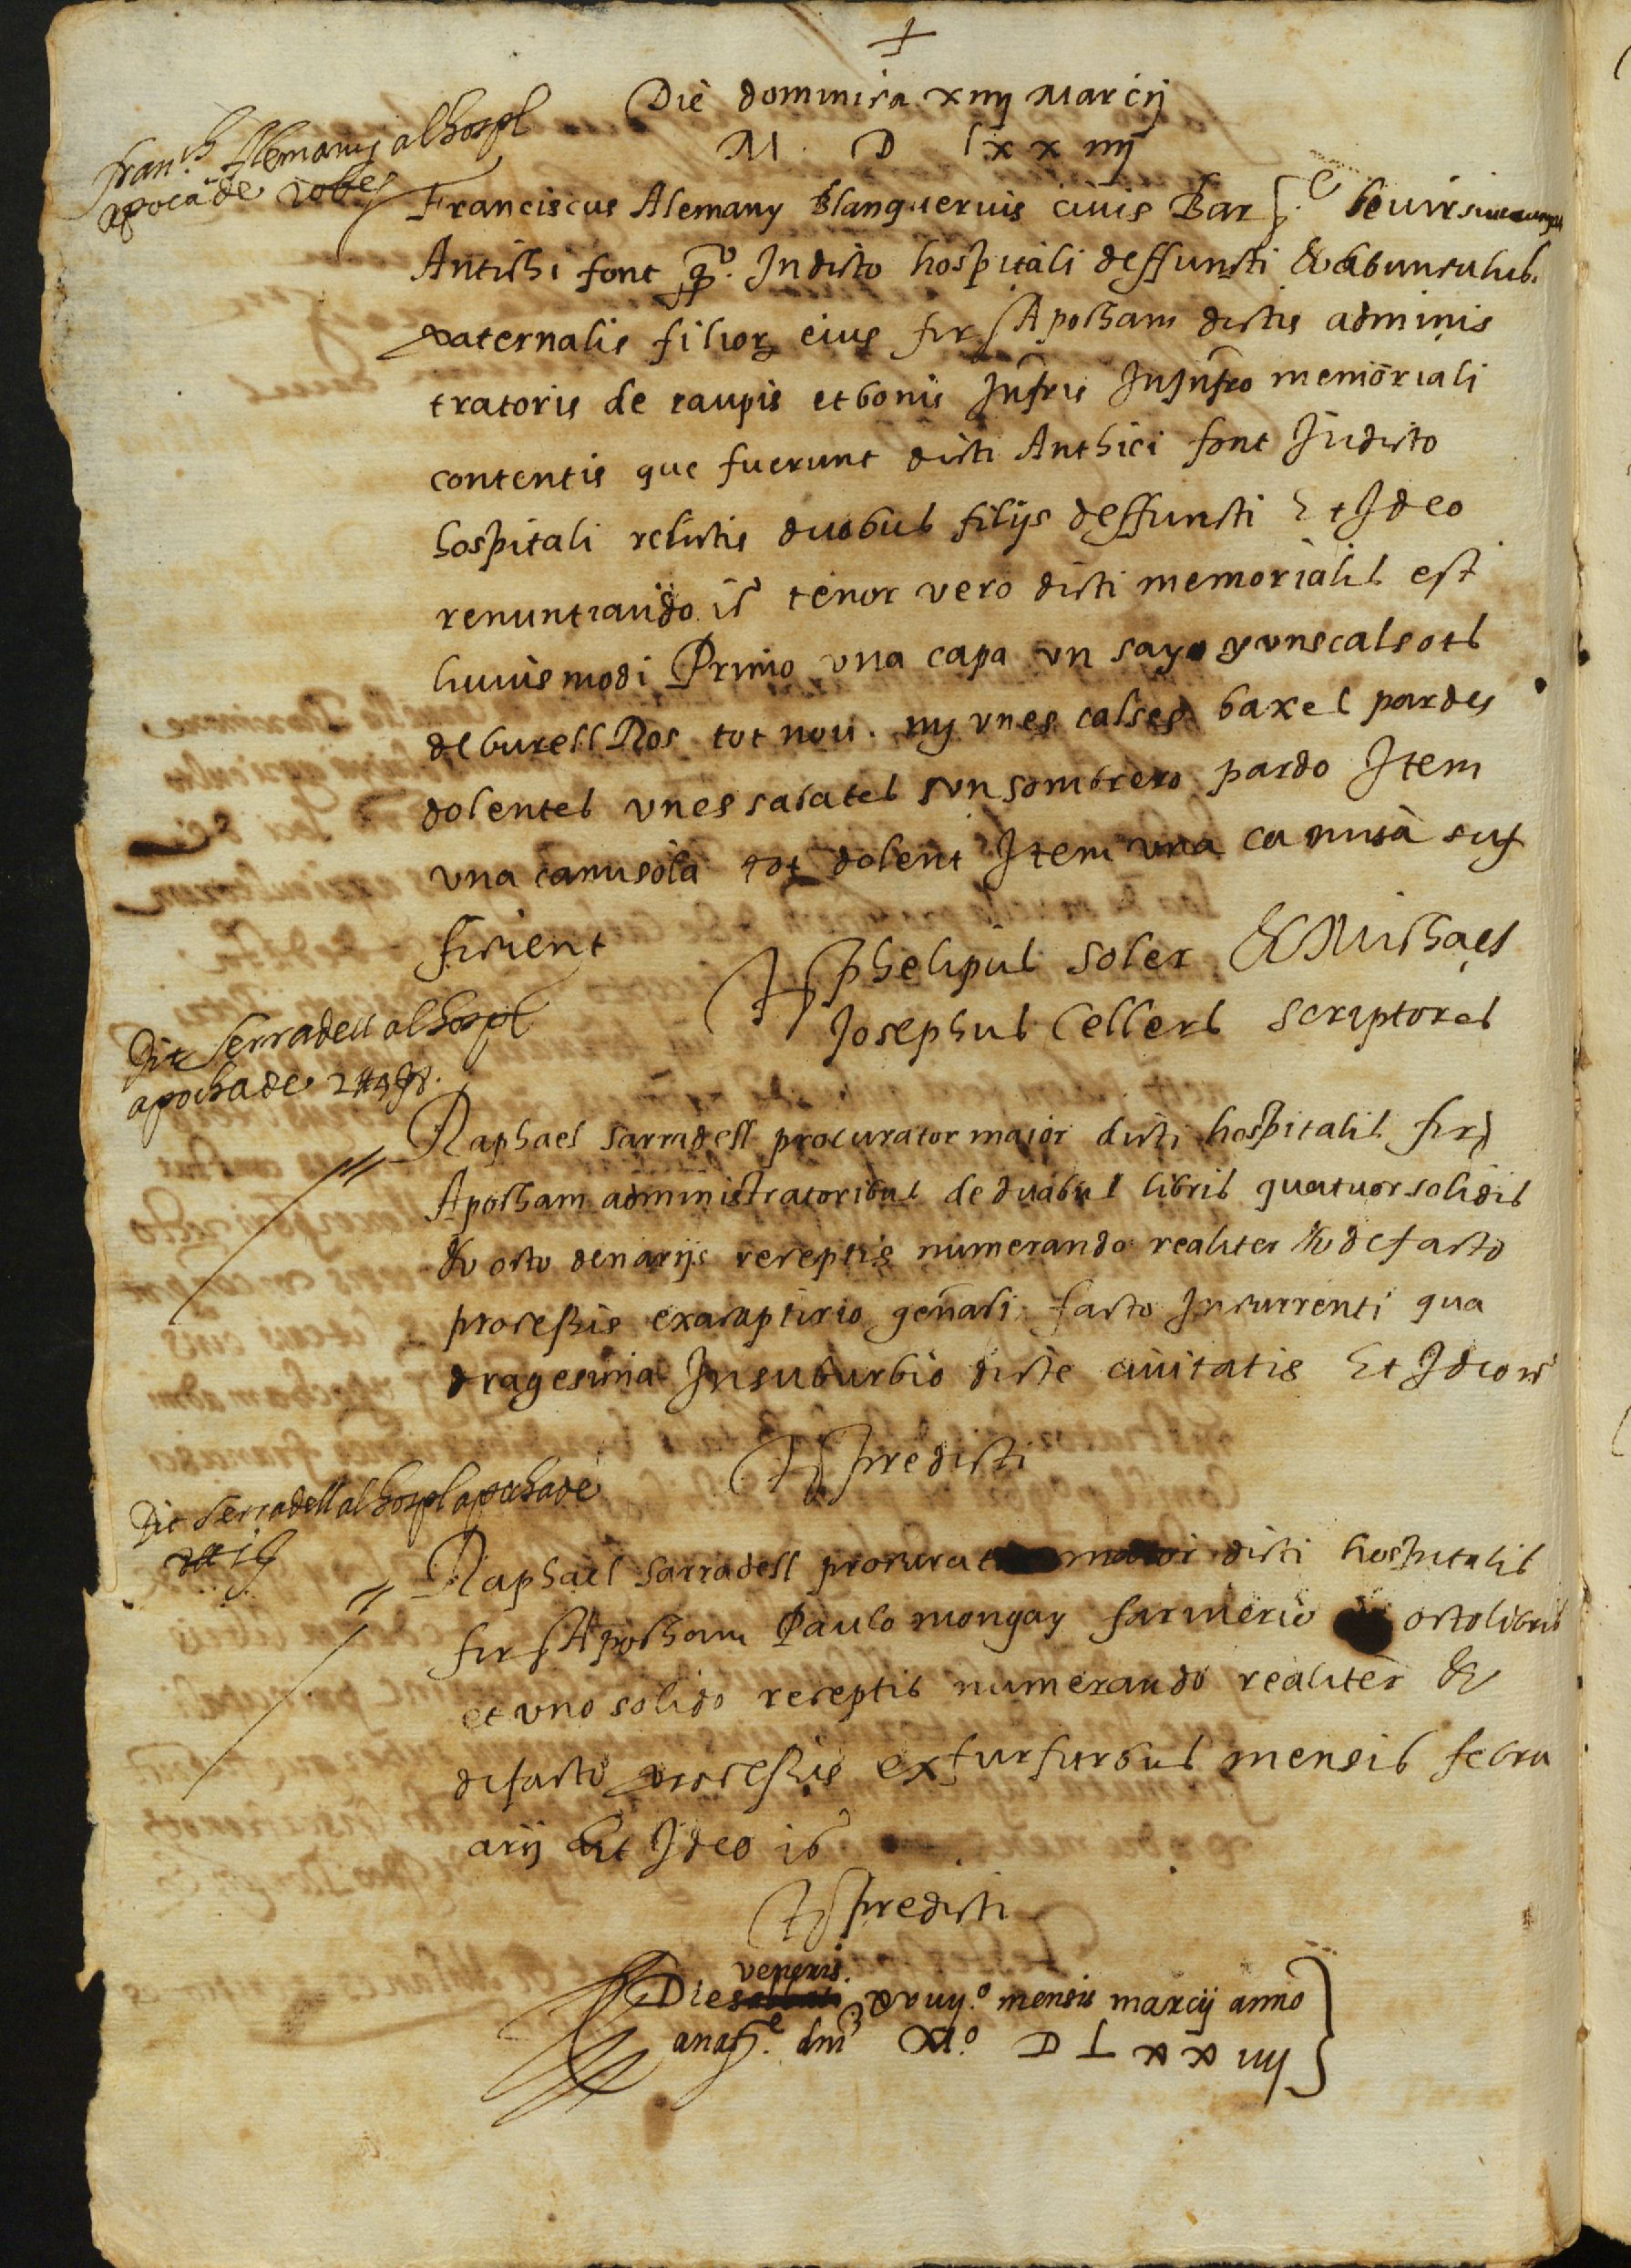 Die dominica xiiij Marcij
M D lxxiiij
fran.ch Alemany al hospl
apoca de robes
Franciscus Alemany Blanquerius civis Bar
Antichi font q.º In dicto hospitali deffuncti & abunculus
paternalis filior eius fir Apocham dictis adminis
tratoris de raupis et bonis Infris In Infro memoriali
contentis que fuerunt dicti Anthici font In dicto
hospitali relictis duobus filijs deffuncti Et Ideo
renuntiando ir tenor vero dicti memorialis est
huiusmodi Primo una capa un sayo y uns calsots
de burell Ros tot nou. mj unes calses baxes pardes
dolentes unes sabates sun sombrero pardo Item
una camisola tot dolent Item una camisa suf
ficient
Ts phelipus Soler & Michaes
Josephus Cellers scriptores
Dit Serradell al hospl
apocha de 2 ll 4 s 8.
Raphael sarradell procurator maior dicti hospitalis fir
Apocham administratoribus de duabus libris quatuor solidis
& octo denarijs receptis numerando realiter & de facto
processis ex acaptirio general facto In currenti qua
dragesima In suburbio dicte civitatis Et Ideo ir
Ts predicti
Dit Serradell al hospl apocha de
Raphael sarradell procurat maior dicti hospitalis
fir Apocham Paulo mongay farinerio octo libris
et uno solido receptis numerando realiter &
de facto processis ex furfuribus mensis febru
arij Et Ideo ir
Ts predicti
veneris
Die xviiij.º mensis marcij anno
a nat.e dni M.º D L x x iiij